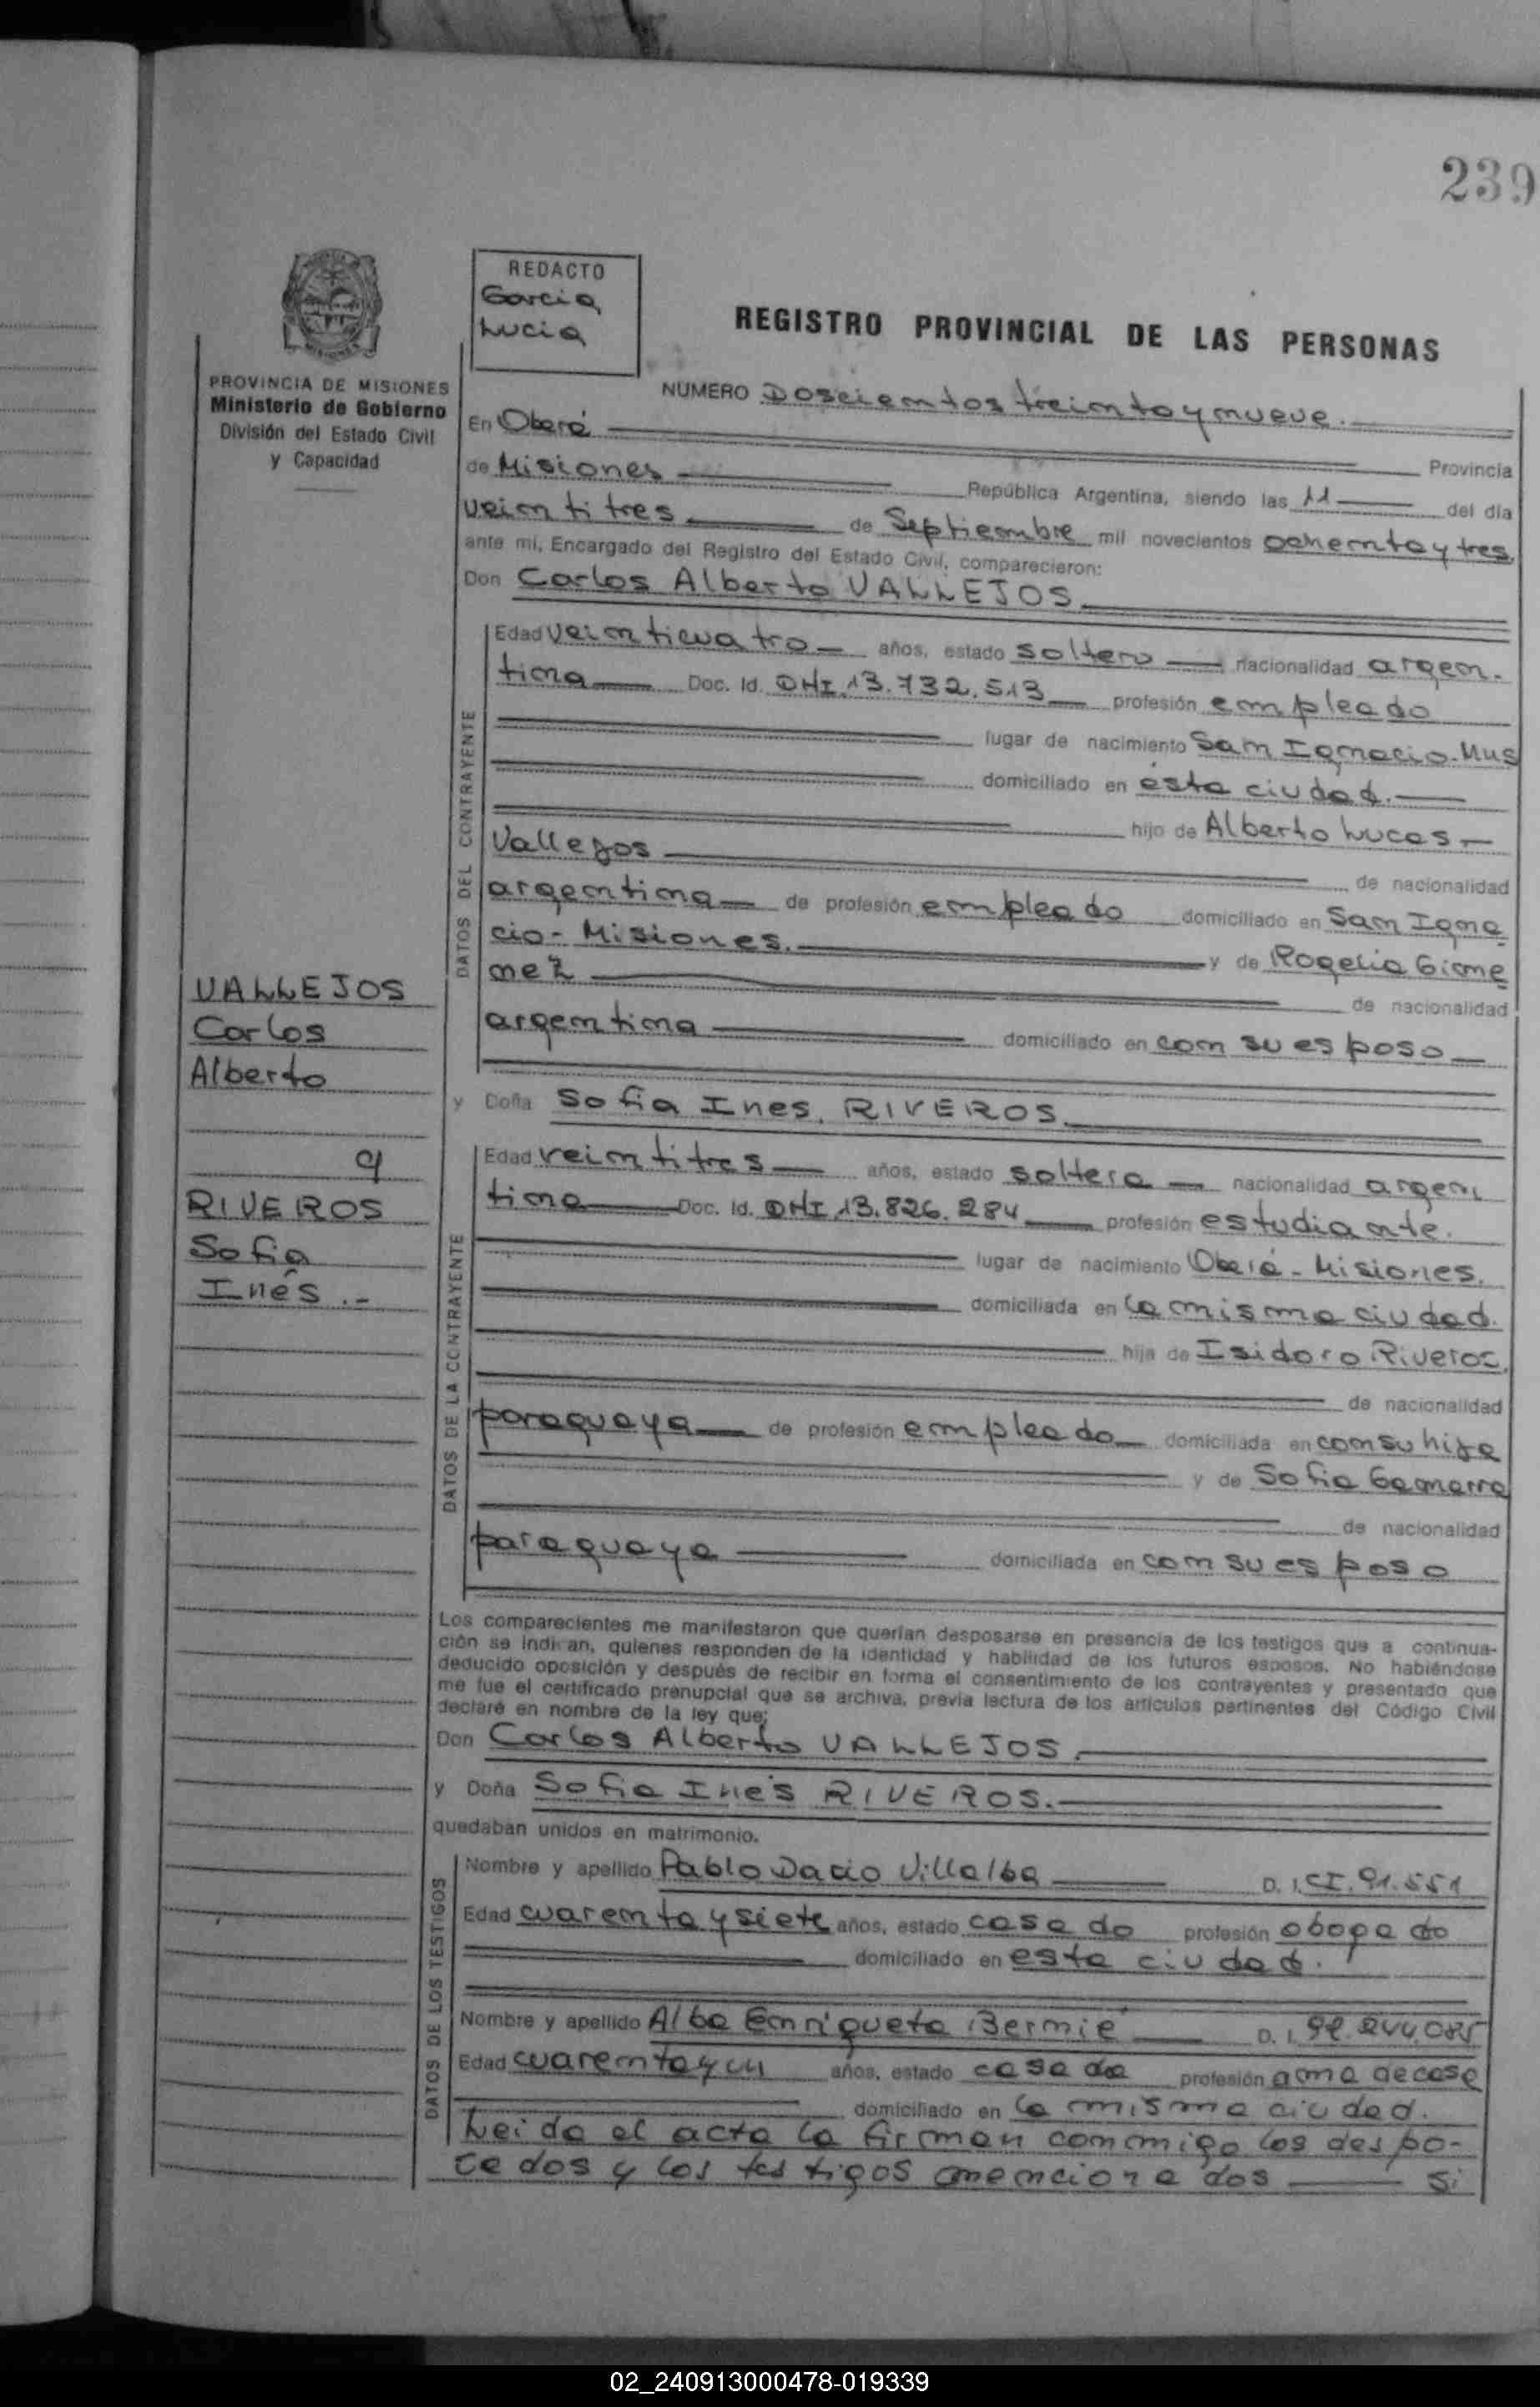 239
REDACTO
Garcia
Lucia
REGISTRO PROVINCIAL DE LAS PERSONAS
PROVINCIA DE MISIONES
Ministerio de Gobierno
División del Estado Civil
y Capacidad
NUMERO Doscientos treinta y nueve.
En Oberá
Provincia
de Misiones República Argentina, siendo las 11 del día
veintitres de Septiembre mil novecientos ochenta y tres
ante mí, Encargado del Registro del Estado Civil, comparecieron:
Don Carlos Alberto VALLEJOS
DATOS DEL CONTRAYENTE
Edad veinticuatro años, estado soltero nacionalidad argen-
tina Doc. Id. DNI.13.732.513 profesión empleado
lugar de nacimiento San Ignacio-Mns
domiciliado en ésta ciudad.
hijo de Alberto Lucas
Vallejos de nacionalidad
argentina de profesión empleado domiciliado en San Igna
cio- Misiones. y de Rogelia Gime
nez de nacionalidad
argentina domiciliado en con su esposo
VALLEJOS
Carlos
Alberto
y
RIVEROS
Sofia
Inés.-
y Doña Sofia Ines. RIVEROS.
DATOS DE LA CONTRAYENTE
Edad veintitres años, estado soltera nacionalidad argen
tina Doc. Id. DNI.13.826.284 profesión estudiante.
lugar de nacimiento Oberá- Misiones.
domiciliada en la misma ciudad.
hija de Isidoro Riveros.
de nacionalidad
paraguaya de profesión empleado domiciliada en con su hija
y de Sofia Gamarra
de nacionalidad
paraguaya domiciliada en con su esposo
Los comparecientes me manifestaron que querían desposarse en presencia de los testigos que a continua-
ción se indican, quienes responden de la identidad y habilidad de los futuros esposos. No habiéndose
deducido oposición y después de recibir en forma el consentimiento de los contrayentes y presentado que
me fue el certificado prenupcial que se archiva, previa lectura de los artículos pertinentes del Código Civil
declaré en nombre de la ley que;
Don Carlos Alberto VALLEJOS.
y Doña Sofia Inés RIVEROS.
quedaban unidos en matrimonio.
DATOS DE LOS TESTIGOS
Nombre y apellido Pablo Dacio Villalba D. I. CI.91.551
Edad cuarenta y siete años, estado casado profesión abogado
domiciliado en esta ciudad.
Nombre y apellido Alba Enriqueta Bernié D. I. 92.244.085
Edad cuarenta y un años, estado casada profesión ama de casa
domiciliado en la misma ciudad.
Leida el acta la firman conmigo los despo-
sados y los testigos mencionados si
02_240913000478-019339